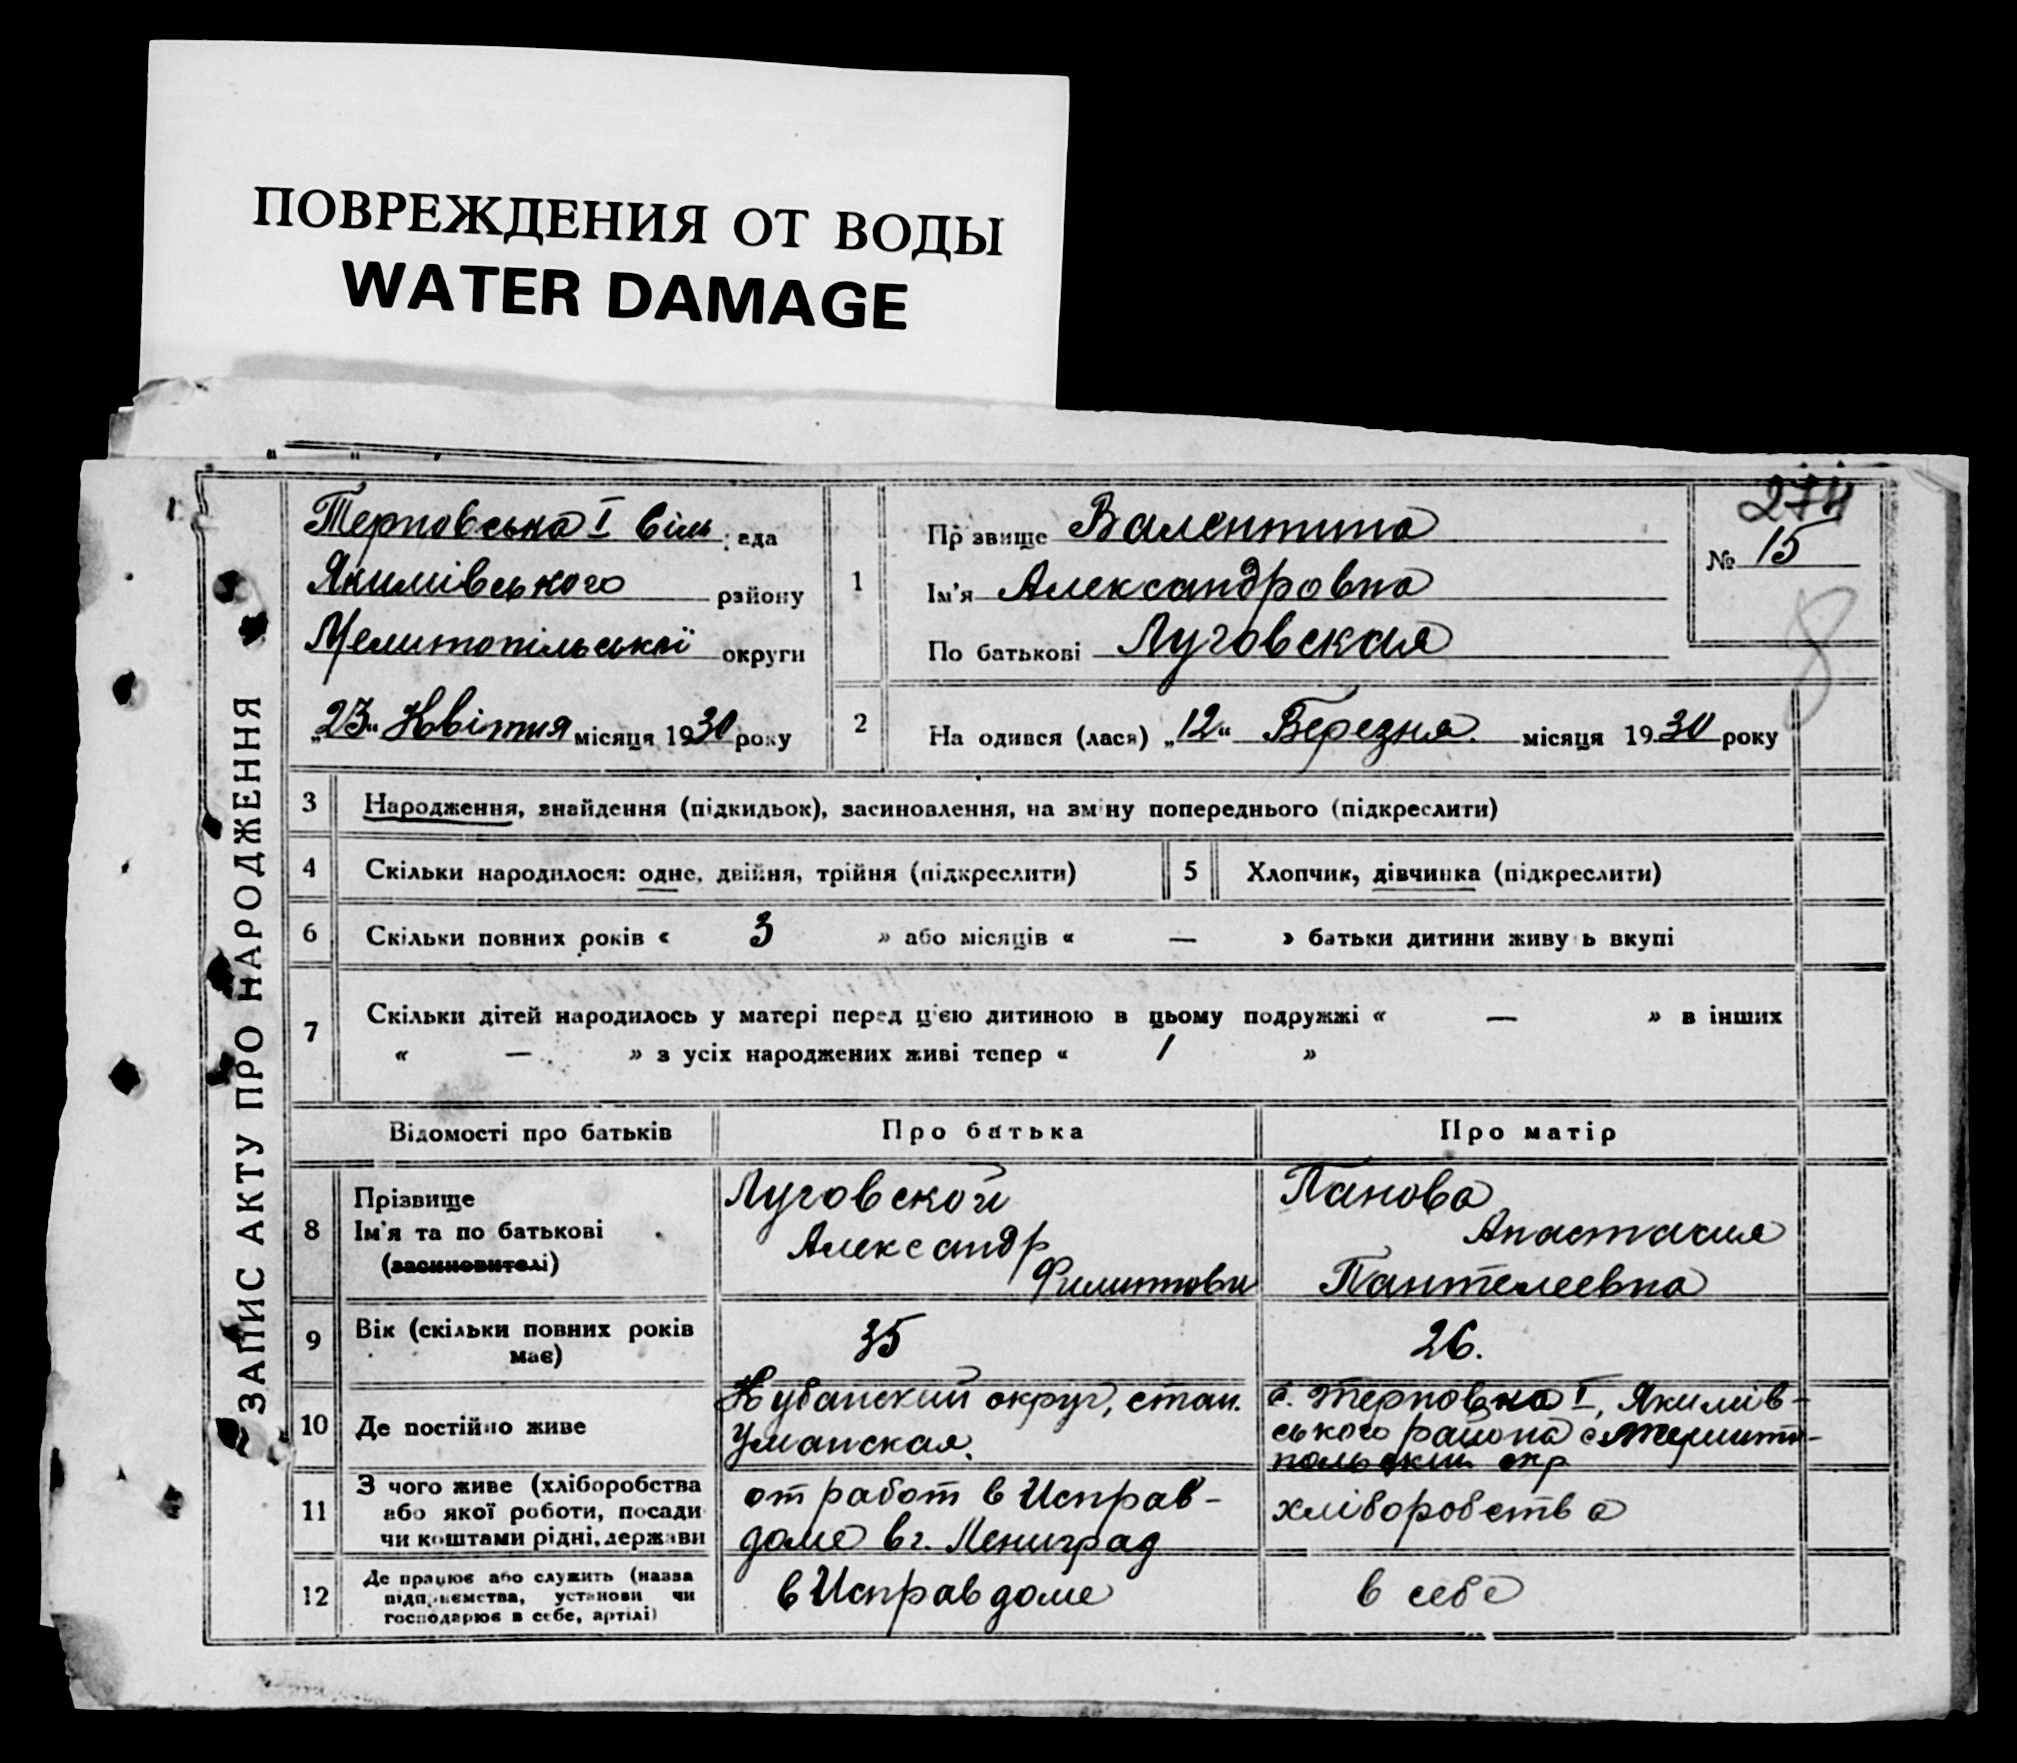 ПОВРЕЖДЕНИЯ ОТ ВОДЫ
WATER DAMAGE
ЗАПИС АКТУ ПРО НАРОДЖЕННЯ
Терновська I сіль ада
Якимівського району
Мелитопільської округи
„23“ Квітня місяця 1930 року
1
Прізвище Валентина
Ім'я Александровна
По батькові Луговская
274
№ 15
8
2 На одився (лася) „12“ Березня місяця 1930 року
3 Народження, знайдення (підкидьок), засиновлення, на зміну попереднього (підкреслити)
4 Скільки народилося: одне, двійня, трійня (підкреслити) 5 Хлопчик, дівчинка (підкреслити)
6 Скільки повних років « 3 » або місяців « — » батьки дитини живу ь вкупі
7 Скільки дітей народилось у матері перед цією дитиною в цьому подружжі « — » в інших
« — » з усіх народжених живі тепер « 1 »
Відомості про батьків Про батька Про матір
8 Прізвище
Ім'я та по батькові
(засиновителі)
Луговской
Александр
Филиппови
Панова
Анастасия
Пантелеевна
9 Вік (скільки повних років
має)
35
26.
10 Де постійно живе
Кубанский округ, стан.
Уманская.
с. Терновка I, Якимів-
ського района Мелито-
польский окр
11 З чого живе (хліборобства
або якої роботи, посади
чи коштами рідні, держави
от работ в Исправ-
доме в г. Лениград
хліборобства
12 Де працює або служить (назва
підприємства, установи чи
господарює в себе, артілі)
в Исправдоме
в себе